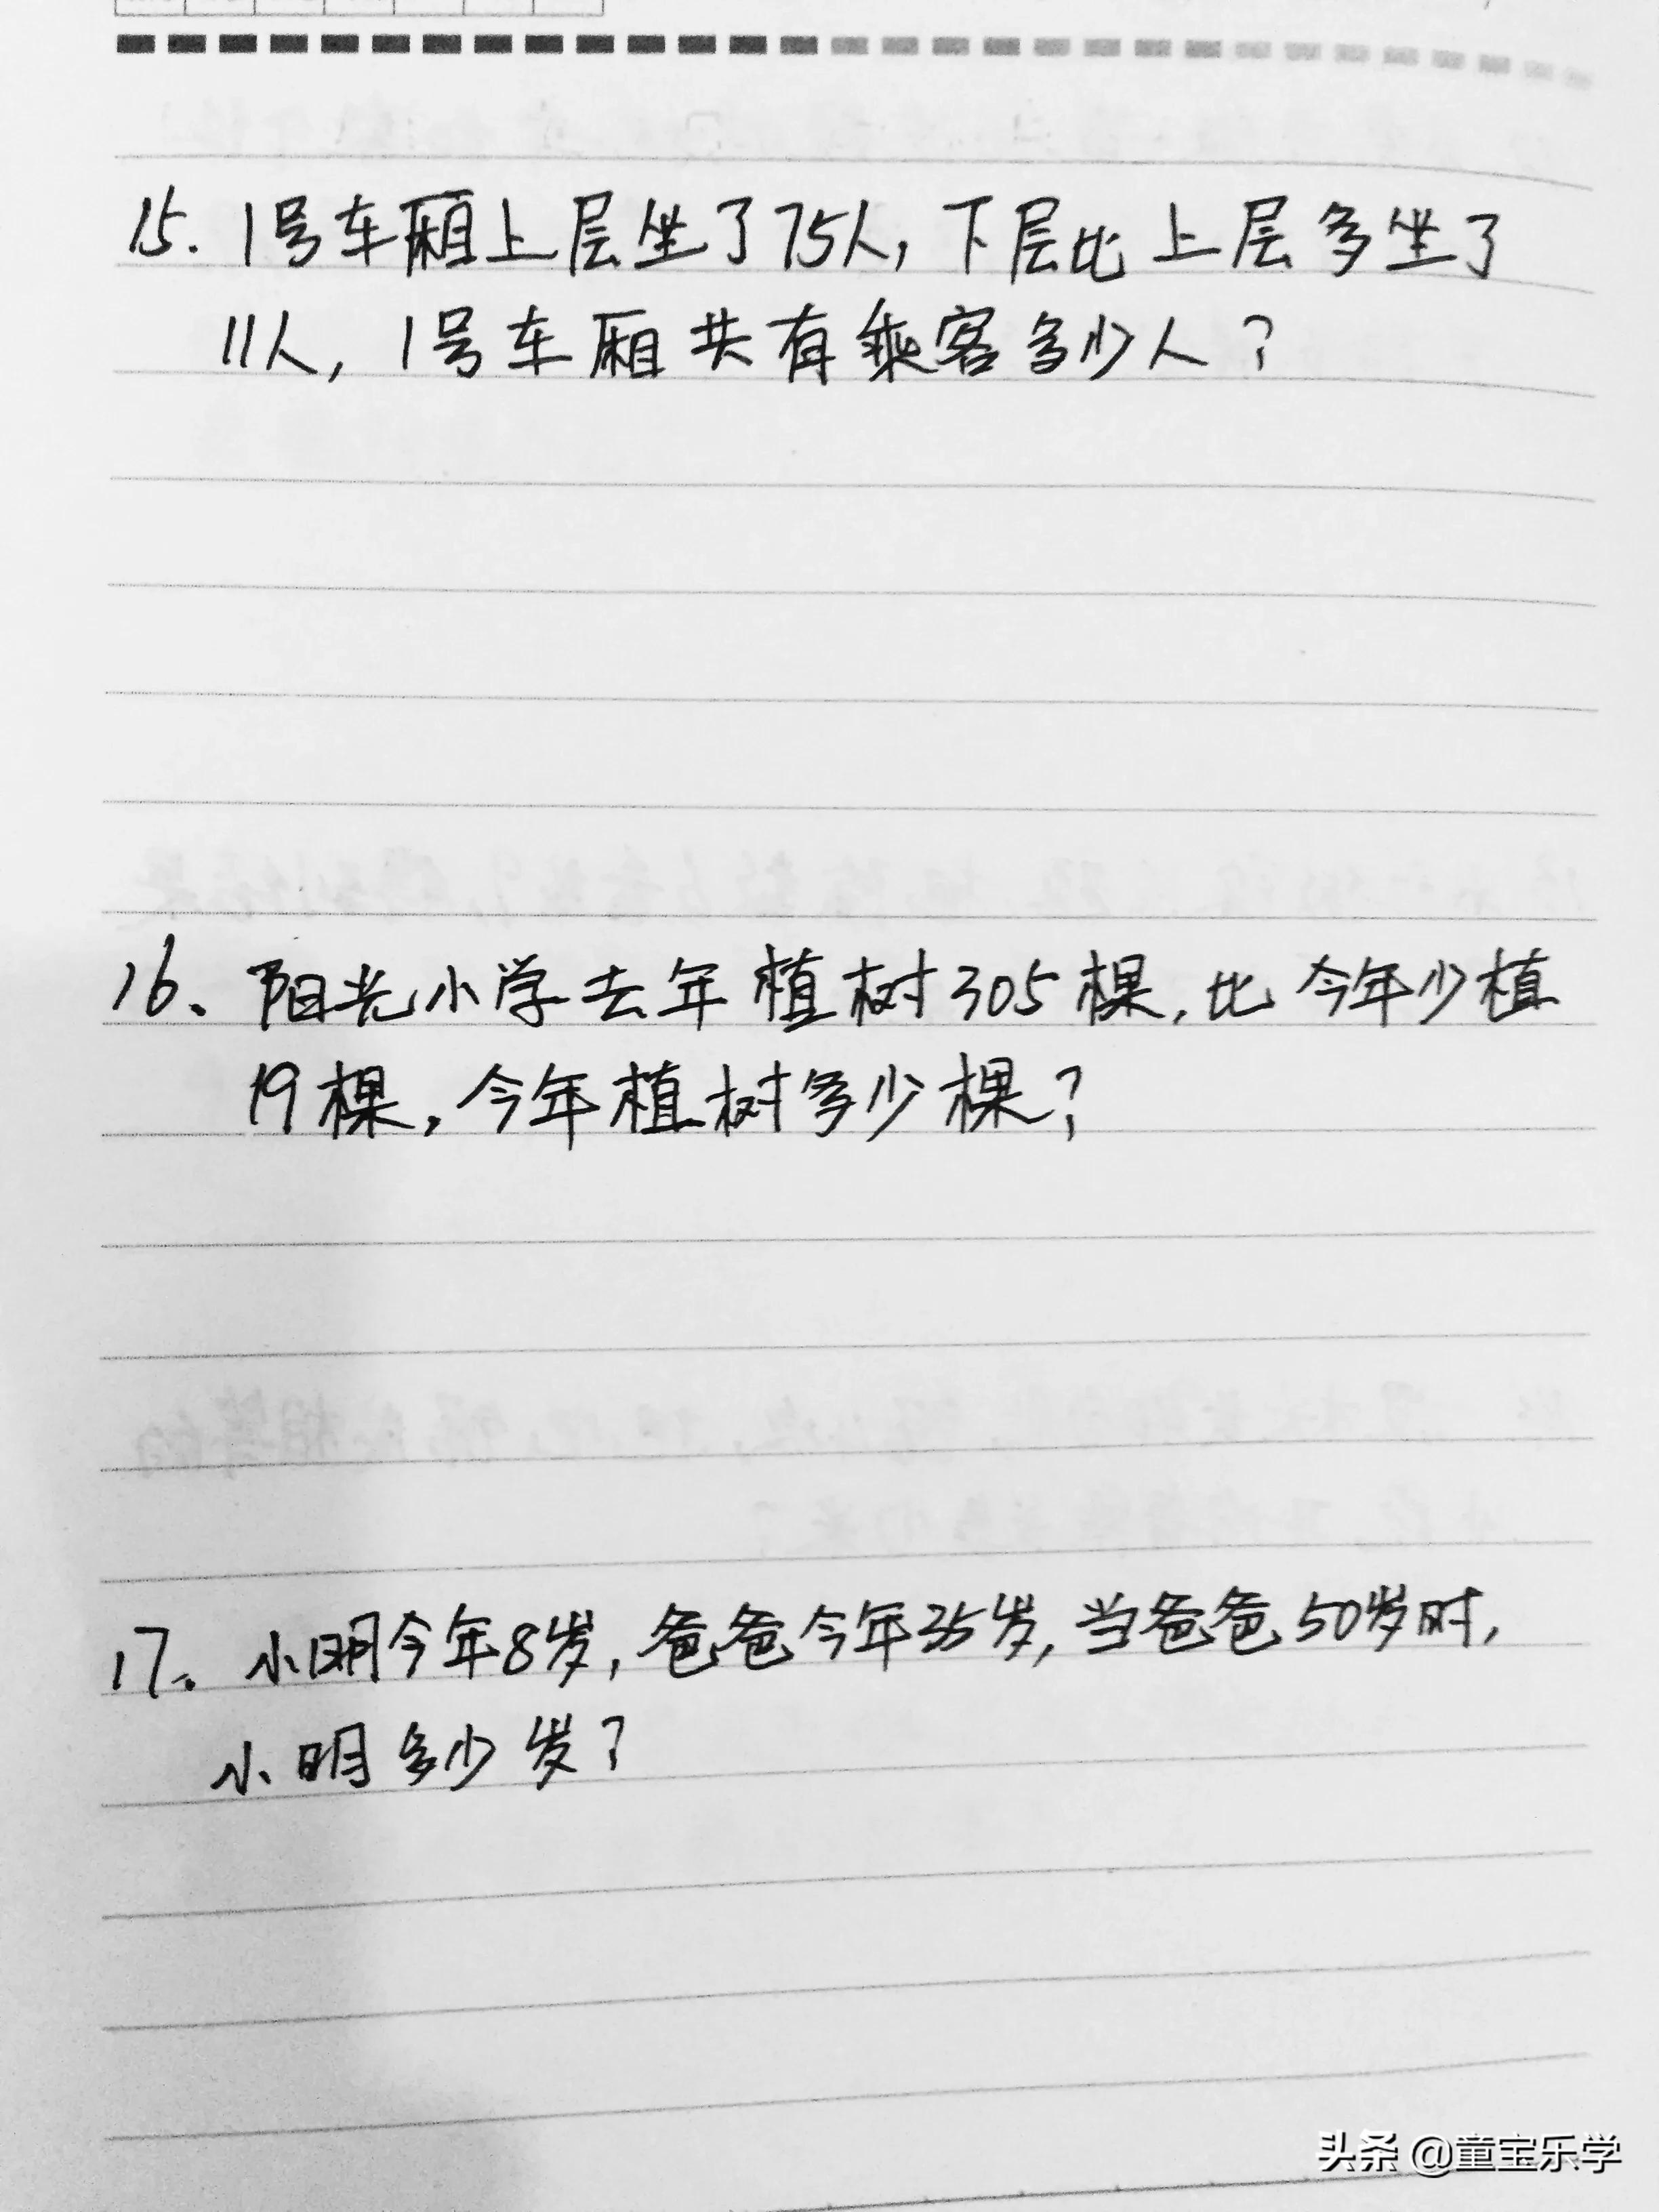 15. 1号车厢上层坐了75人，下层比上层多坐了
11人，1号车厢共有乘客多少人？
16、阳光小学去年植树305棵，比今年少植
19棵，今年植树多少棵？
17、小明今年8岁，爸爸今年35岁，当爸爸50岁时，
小明多少岁？
头条 @童宝乐学